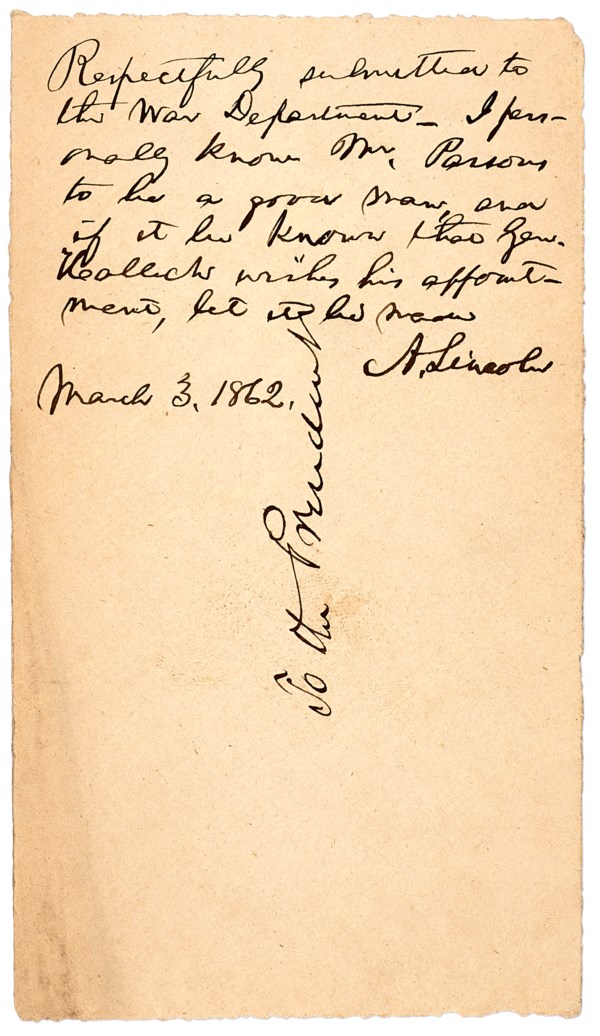 Respectfully submitted to
the War Department— I pers-
onally know Mr. Parsons
to be a good man, and
if it be known that Gen.
Halleck wishes his appoint-
ment, let it be made
A. Lincoln
March 3, 1862.
To the President